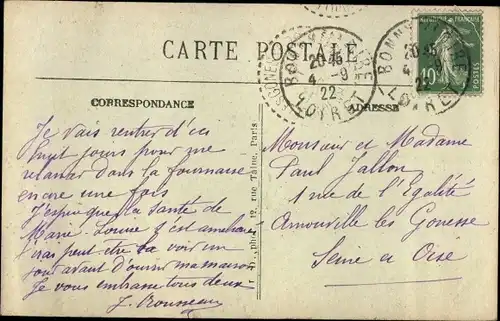 CARTE POSTALE
CORRESPONDANCE
ADRESSE
BONNY S/ LOIRE
20 45
4 - 9
22
LOIRET
20 45
22
LOIRET
POSTES
10
Je vais rentrer d'ici
huit jours pour me
relancer dans la fournaise
encore une fois
J'espère que la santé de
Marie-Louise est améliorée
J'irai peut être la voir un
jour avant d'ouvrir ma maison
Je vous embrasse tous deux
J. Rousseau
12, rue Taine, Paris
Monsieur et Madame
Paul Jallon
1 rue de l'Egalité
Arnouville les Gonesse
Seine et Oise